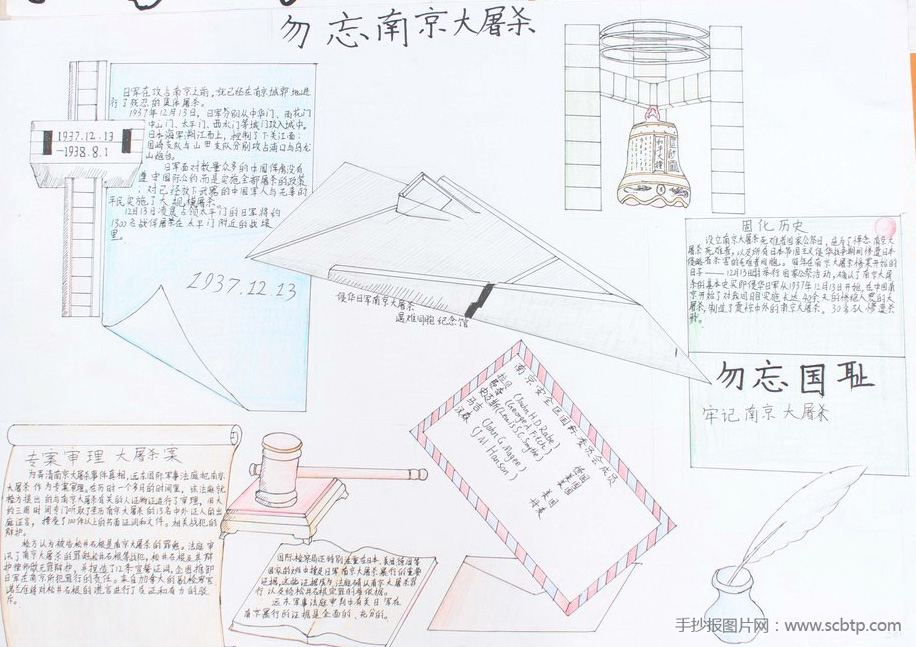 勿忘南京大屠杀
日军在攻占南京之前,就已经在南京城郊地进
行了残忍的集体屠杀。
1937年12月13日,日军分别从中华门、雨花门
中山门、太平门、西水门等城门攻入城中。
日本海军溯江而上,控制了下关江面;
国崎支队与山田支队分别攻占浦口与乌龙
山炮台。
日军面对数量众多的中国俘虏没有
遵守国际公约而是实施全部屠杀的政策
;对已经放下武器的中国军人与无辜的
平民实施了大规模屠杀
12月13日凌晨占领太平门的日军将约
1300名战俘屠杀在太平门附近的战壕
里。
1937.12.13
-1938.8.1
1937.12.13
侵华日军南京大屠杀
遇难同胞纪念馆
和平大钟
固化历史
设立南京大屠杀死难者国家公祭日,是为了悼念南京大
屠杀死难者,以及所有日本帝国主义侵华战争期间惨遭日本
侵略者杀害的死难者同胞。
日子——12月13日举行国家公祭活动,确认了南京大屠
杀的基本史实即侵华日军从1937年12月13日开始,在中国南
京开始了对我同胞实施长达40余天的惨绝人寰的大
屠杀,制造了震惊中外的南京大屠杀。30多万人惨遭杀
戮。
勿忘国耻
牢记南京大屠杀
南京安全区国际委员会成员
拉贝 (John H.D.Rabe) 德国
费奇 (George A.Fitch) 美国
史迈斯 (Lewis S.C.Smythe) 美国
马吉 (John G.Magee) 美国
汉森 (J.M.Hanson) 丹麦
专案审理 大屠杀案
为弄清南京大屠杀事件真相,远东国际军事法庭把南京
大屠杀作为专案审理。在历时一个多月的时间里,该法庭就
检方提出的与南京大屠杀有关的人证物证进行了审理,用大
约三周时间专门听取了来自南京大屠杀的13名中外证人的出
庭证言,接受了100件以上的书面证词和文件。相关战犯的
辩护。
检方认为被告松井石根是南京大屠杀的罪魁。
日军在南京所犯罪行的责任。来自加拿大的副检察官
国际检察局还特别注重日本、美国德国等
证据,这些证据成为法庭确认南京大屠杀罪
行以及给松井石根定罪的重要依据。
远东军事法庭审判中有关日军在
南京暴行的证据是全面的、充分的。
手抄报图片网:www.scbtp.com